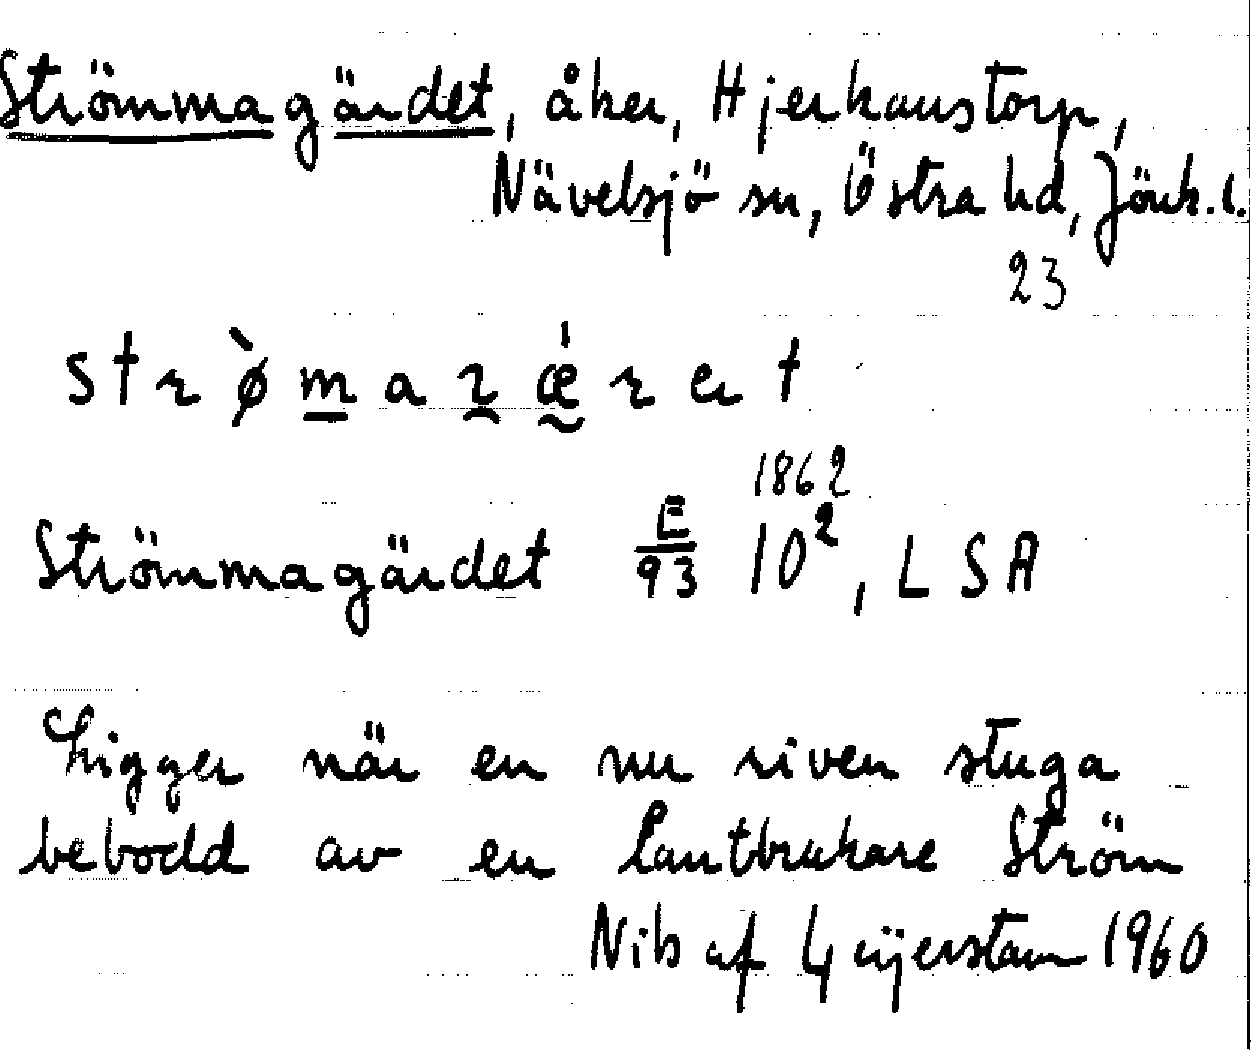 Strömmagärdet, åker, Hjerkanstorp,
Nävelsjö sn, Östra hd, Jönk.l.
23
Strömmagärdet E/93 10², LSA
1862
Ligger när en nu riven stuga
bebodd av en lantbrukare Ström
Nils af Geijerstam 1960